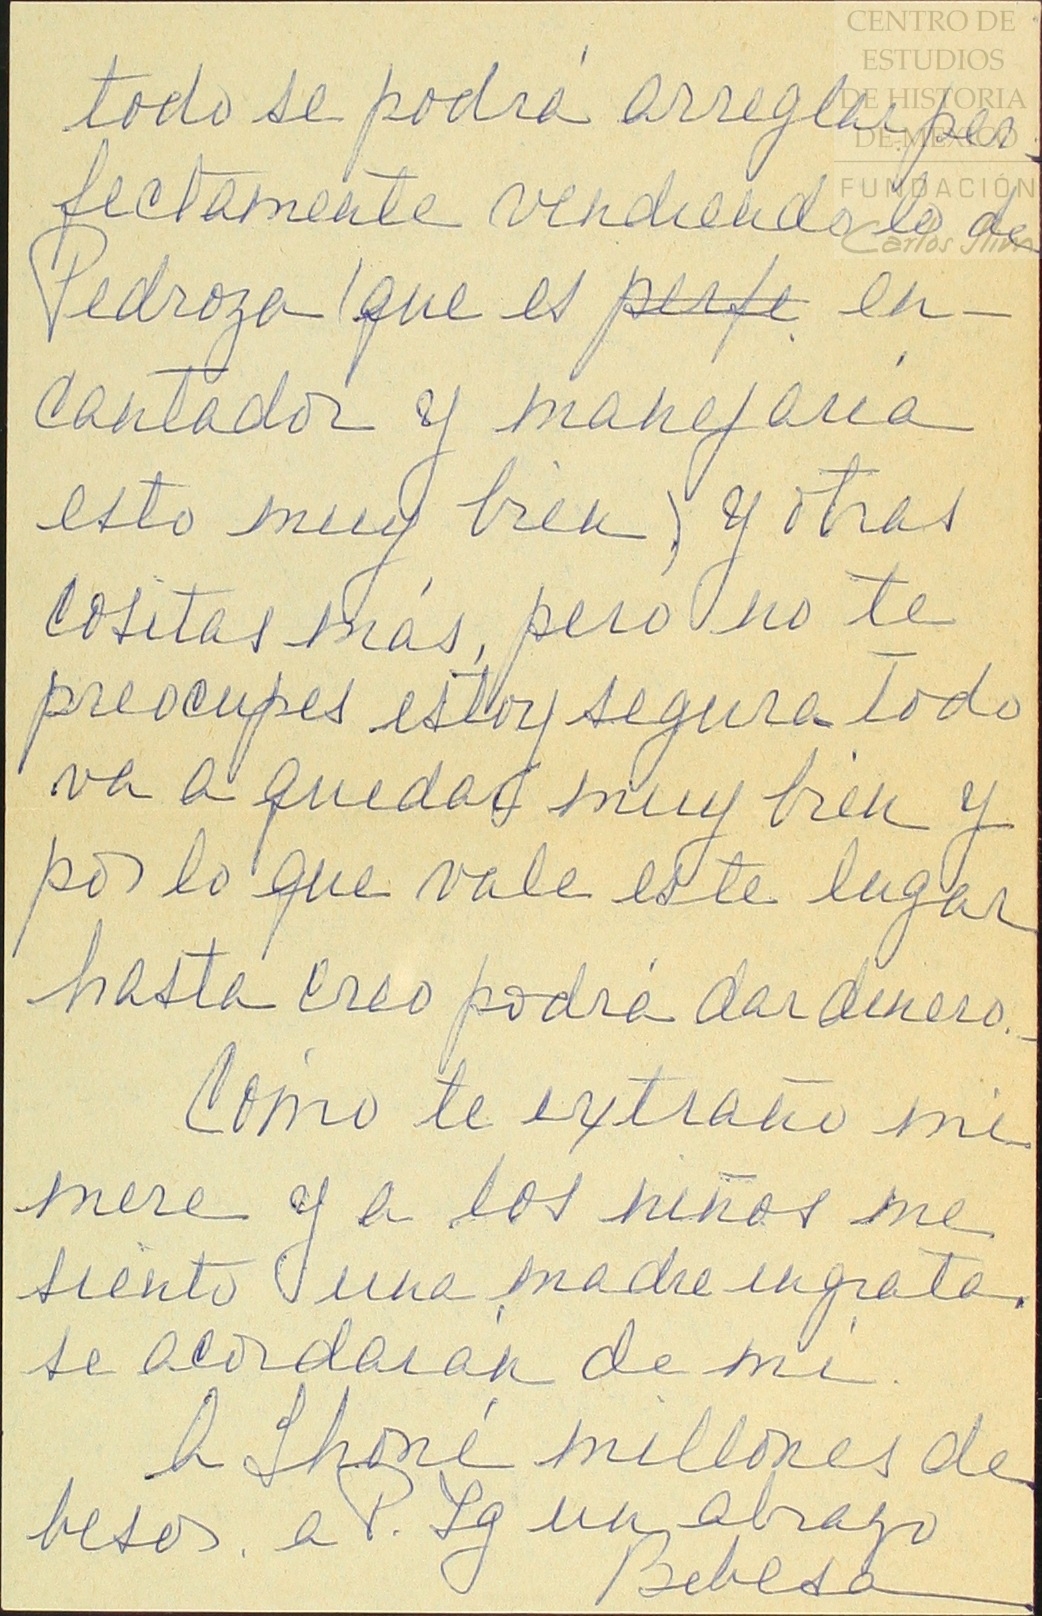 CENTRO DE
ESTUDIOS
DE HISTORIA
DE MÉXICO
FUNDACIÓN
Carlos Slim
todo se podrá arreglar per-
fectamente vendiendo lo de
Pedroza (que es perfe en-
cantador y manejaría
esto muy bien) y otras
cositas más, pero no te
preocupes estoy segura todo
va a quedar muy bien y
por lo que vale este lugar
hasta creo podrá dar dinero.-
Cómo te extraño mi
mere y a los niños me
siento una madre ingrata.
se acordarán de mí.
A Shoné millones de
besos. a P. Ig un abrazo
Bebesa